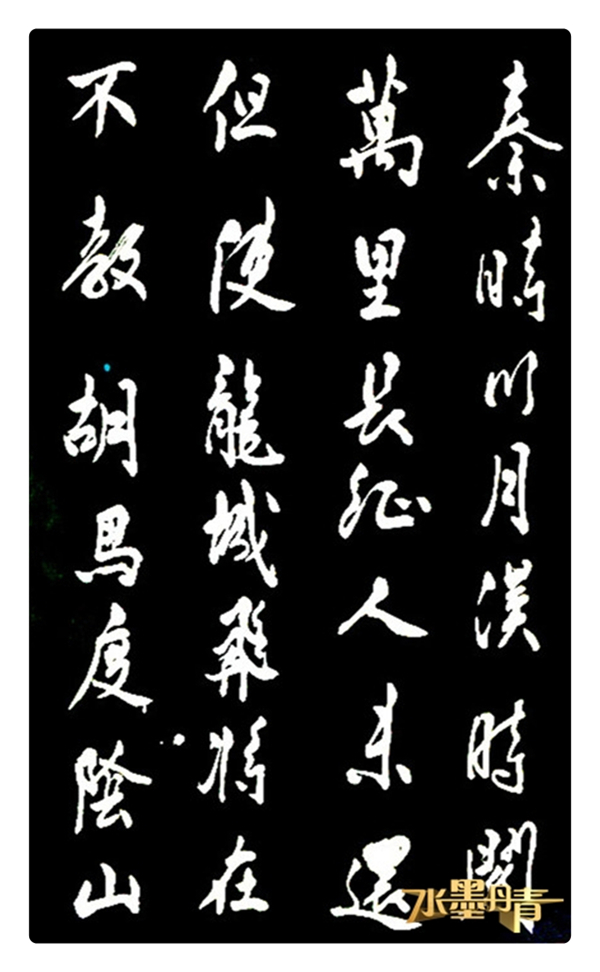 秦時明月漢時關
萬里長征人未還
但使龍城飛將在
不教胡馬度陰山
水墨丹青